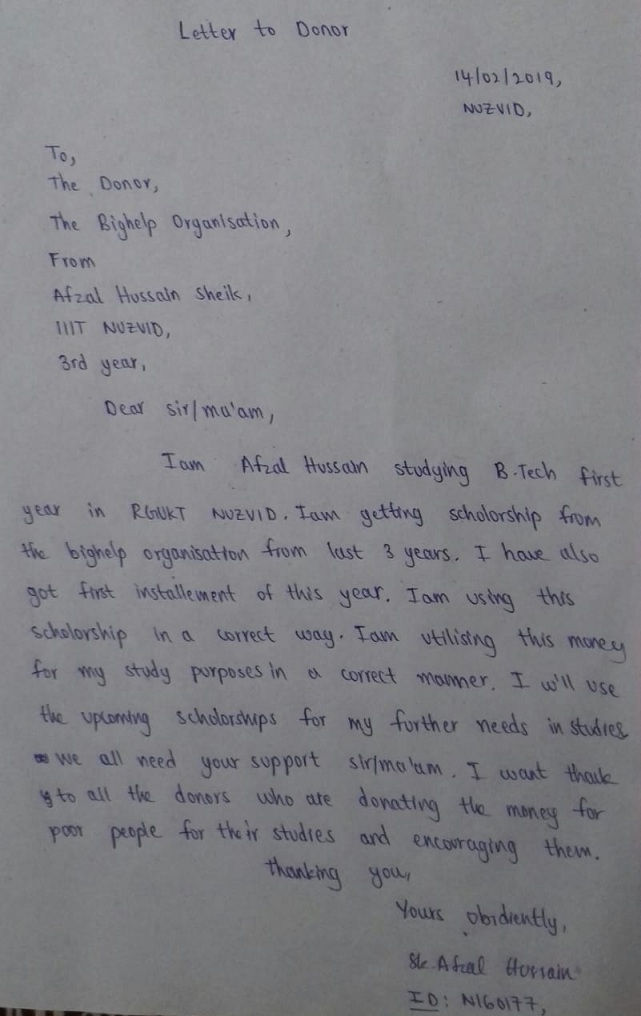 Letter to Donor
14/02/2019,
NUZVID,
To,
The Donor,
The Bighelp Organisation,
From
Afzal Hussain Sheik,
IIIT NUZVID,
3rd year,
Dear sir/ma'am,
Iam Afzal Hussain studying B.Tech first
year in RGUKT NUZVID. Iam getting scholorship from
the bighelp organisation from last 3 years. I have also
got first installement of this year. Iam using this
scholorship in a correct way. Iam utilising this money
for my study purposes in a correct manner. I w'll use
the upcoming scholorships for my further needs in studies
we all need your support sir/ma'am. I want thank
to all the donors who are donating the money for
poor people for their studies and encouraging them.
Thanking you,
Yours obidiently,
Sk. Afzal Hussain
ID: N160177,